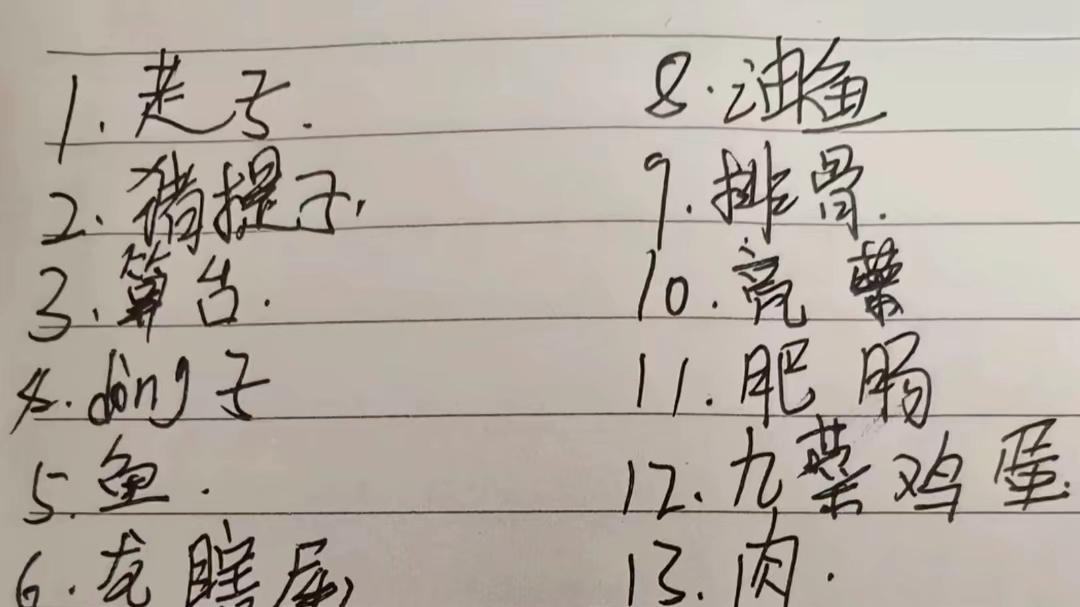 1. 走子.
2. 猪提子.
3. 算台.
4. dòng子
5. 鱼.
6. 龙瞎尾
8. 油鱼
9. 排骨.
10. 亮菜
11. 肥肠
12. 九菜鸡蛋.
13. 肉.